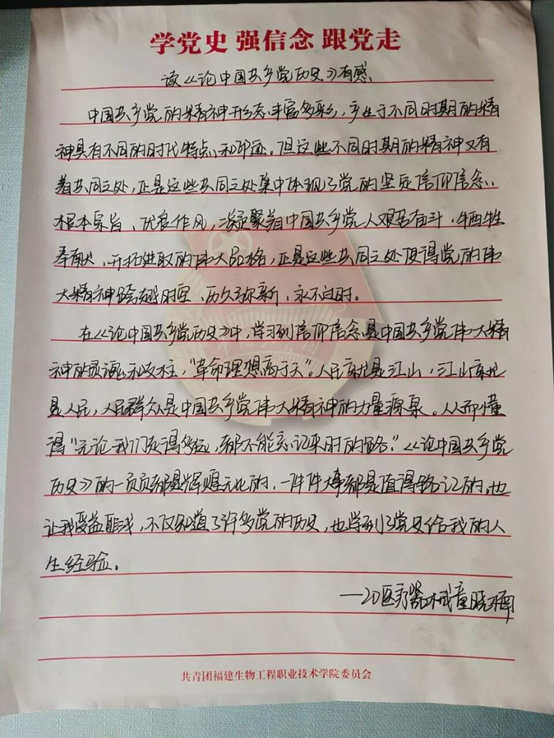 学党史 强信念 跟党走
读《论中国共产党历史》有感
中国共产党的精神形态丰富多彩，产生于不同时期的精
神具有不同的时代特点和印迹。但这些不同时期的精神又有
着共同之处，正是这些共同之处集中体现了党的坚定信仰信念、
根本宗旨、优良作风，凝聚着中国共产党人艰苦奋斗、牺牲
奉献、开拓进取的伟大品格，正是这些共同之处使得党的伟
大精神跨越时空、历久弥新、永不过时。
在《论中国共产党历史》中，学习到信仰信念是中国共产党伟大精
神的灵魂和支柱，"革命理想高于天"。人民就是江山，江山就
是人民，人民群众是中国共产党伟大精神的力量源泉。从而懂
得"无论我们走得多远，都不能忘记来时的路。"《论中国共产党
历史》的一页页都是辉煌元化的，一件件事都是值得铭记的，也
让我受益匪浅，不仅知道了许多党的历史，也学到了党史给我的人
生经验。
—20医疗器械童晓楠
共青团福建生物工程职业技术学院委员会